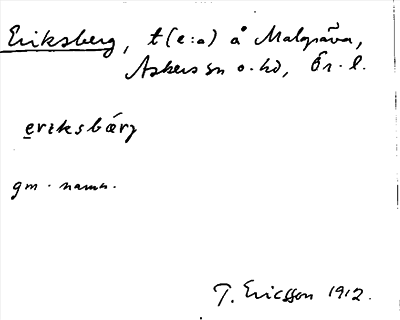 Eriksberg, t (e:a) å Malgräva,
Askers sn o. hd, Ör. l.
eriksbærj
gm. namn.
T. Ericsson 1912.